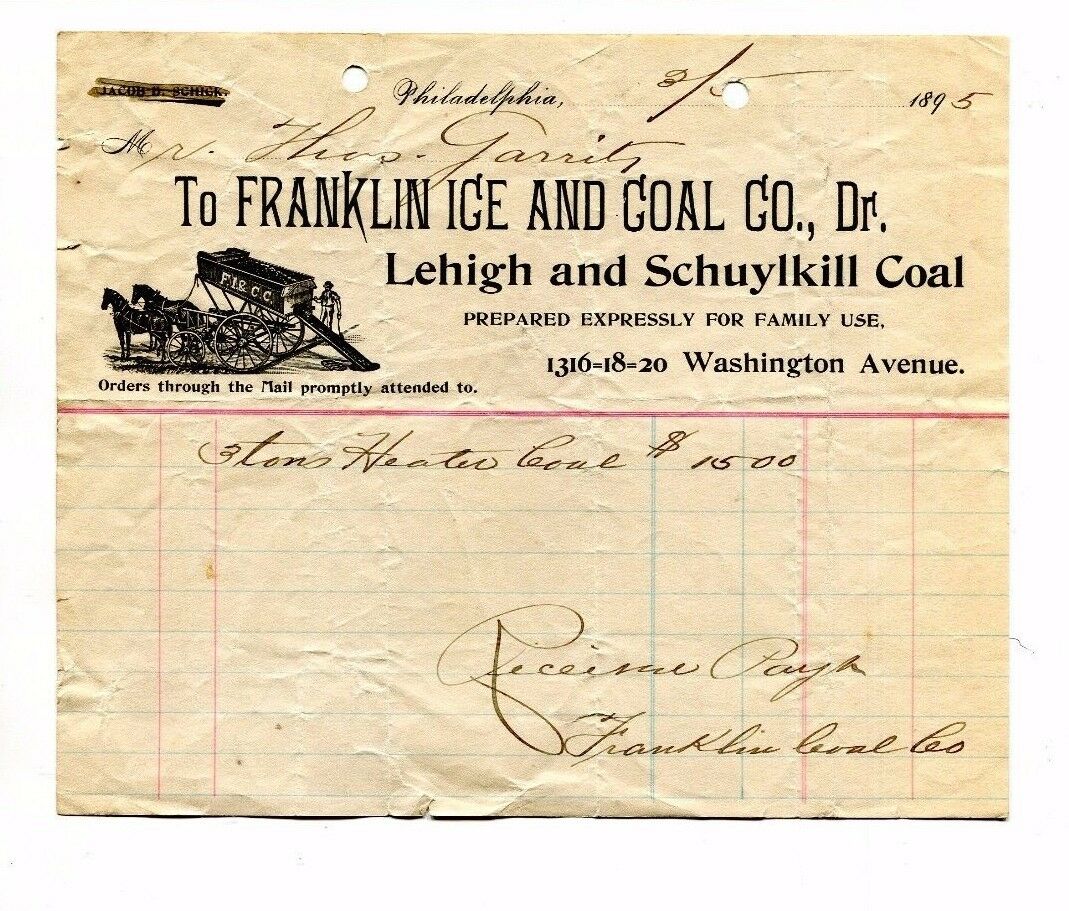 JACOB D. SCHICK.
Philadelphia, 3/5 1895
Mr. Thos. Garrits
To FRANKLIN ICE AND COAL CO., Dr.
F.I.& C.C.
Lehigh and Schuylkill Coal
PREPARED EXPRESSLY FOR FAMILY USE,
1316=18=20 Washington Avenue.
Orders through the Mail promptly attended to.
3 tons Heater Coal $ 15 00
Payt
Franklin Coal Co